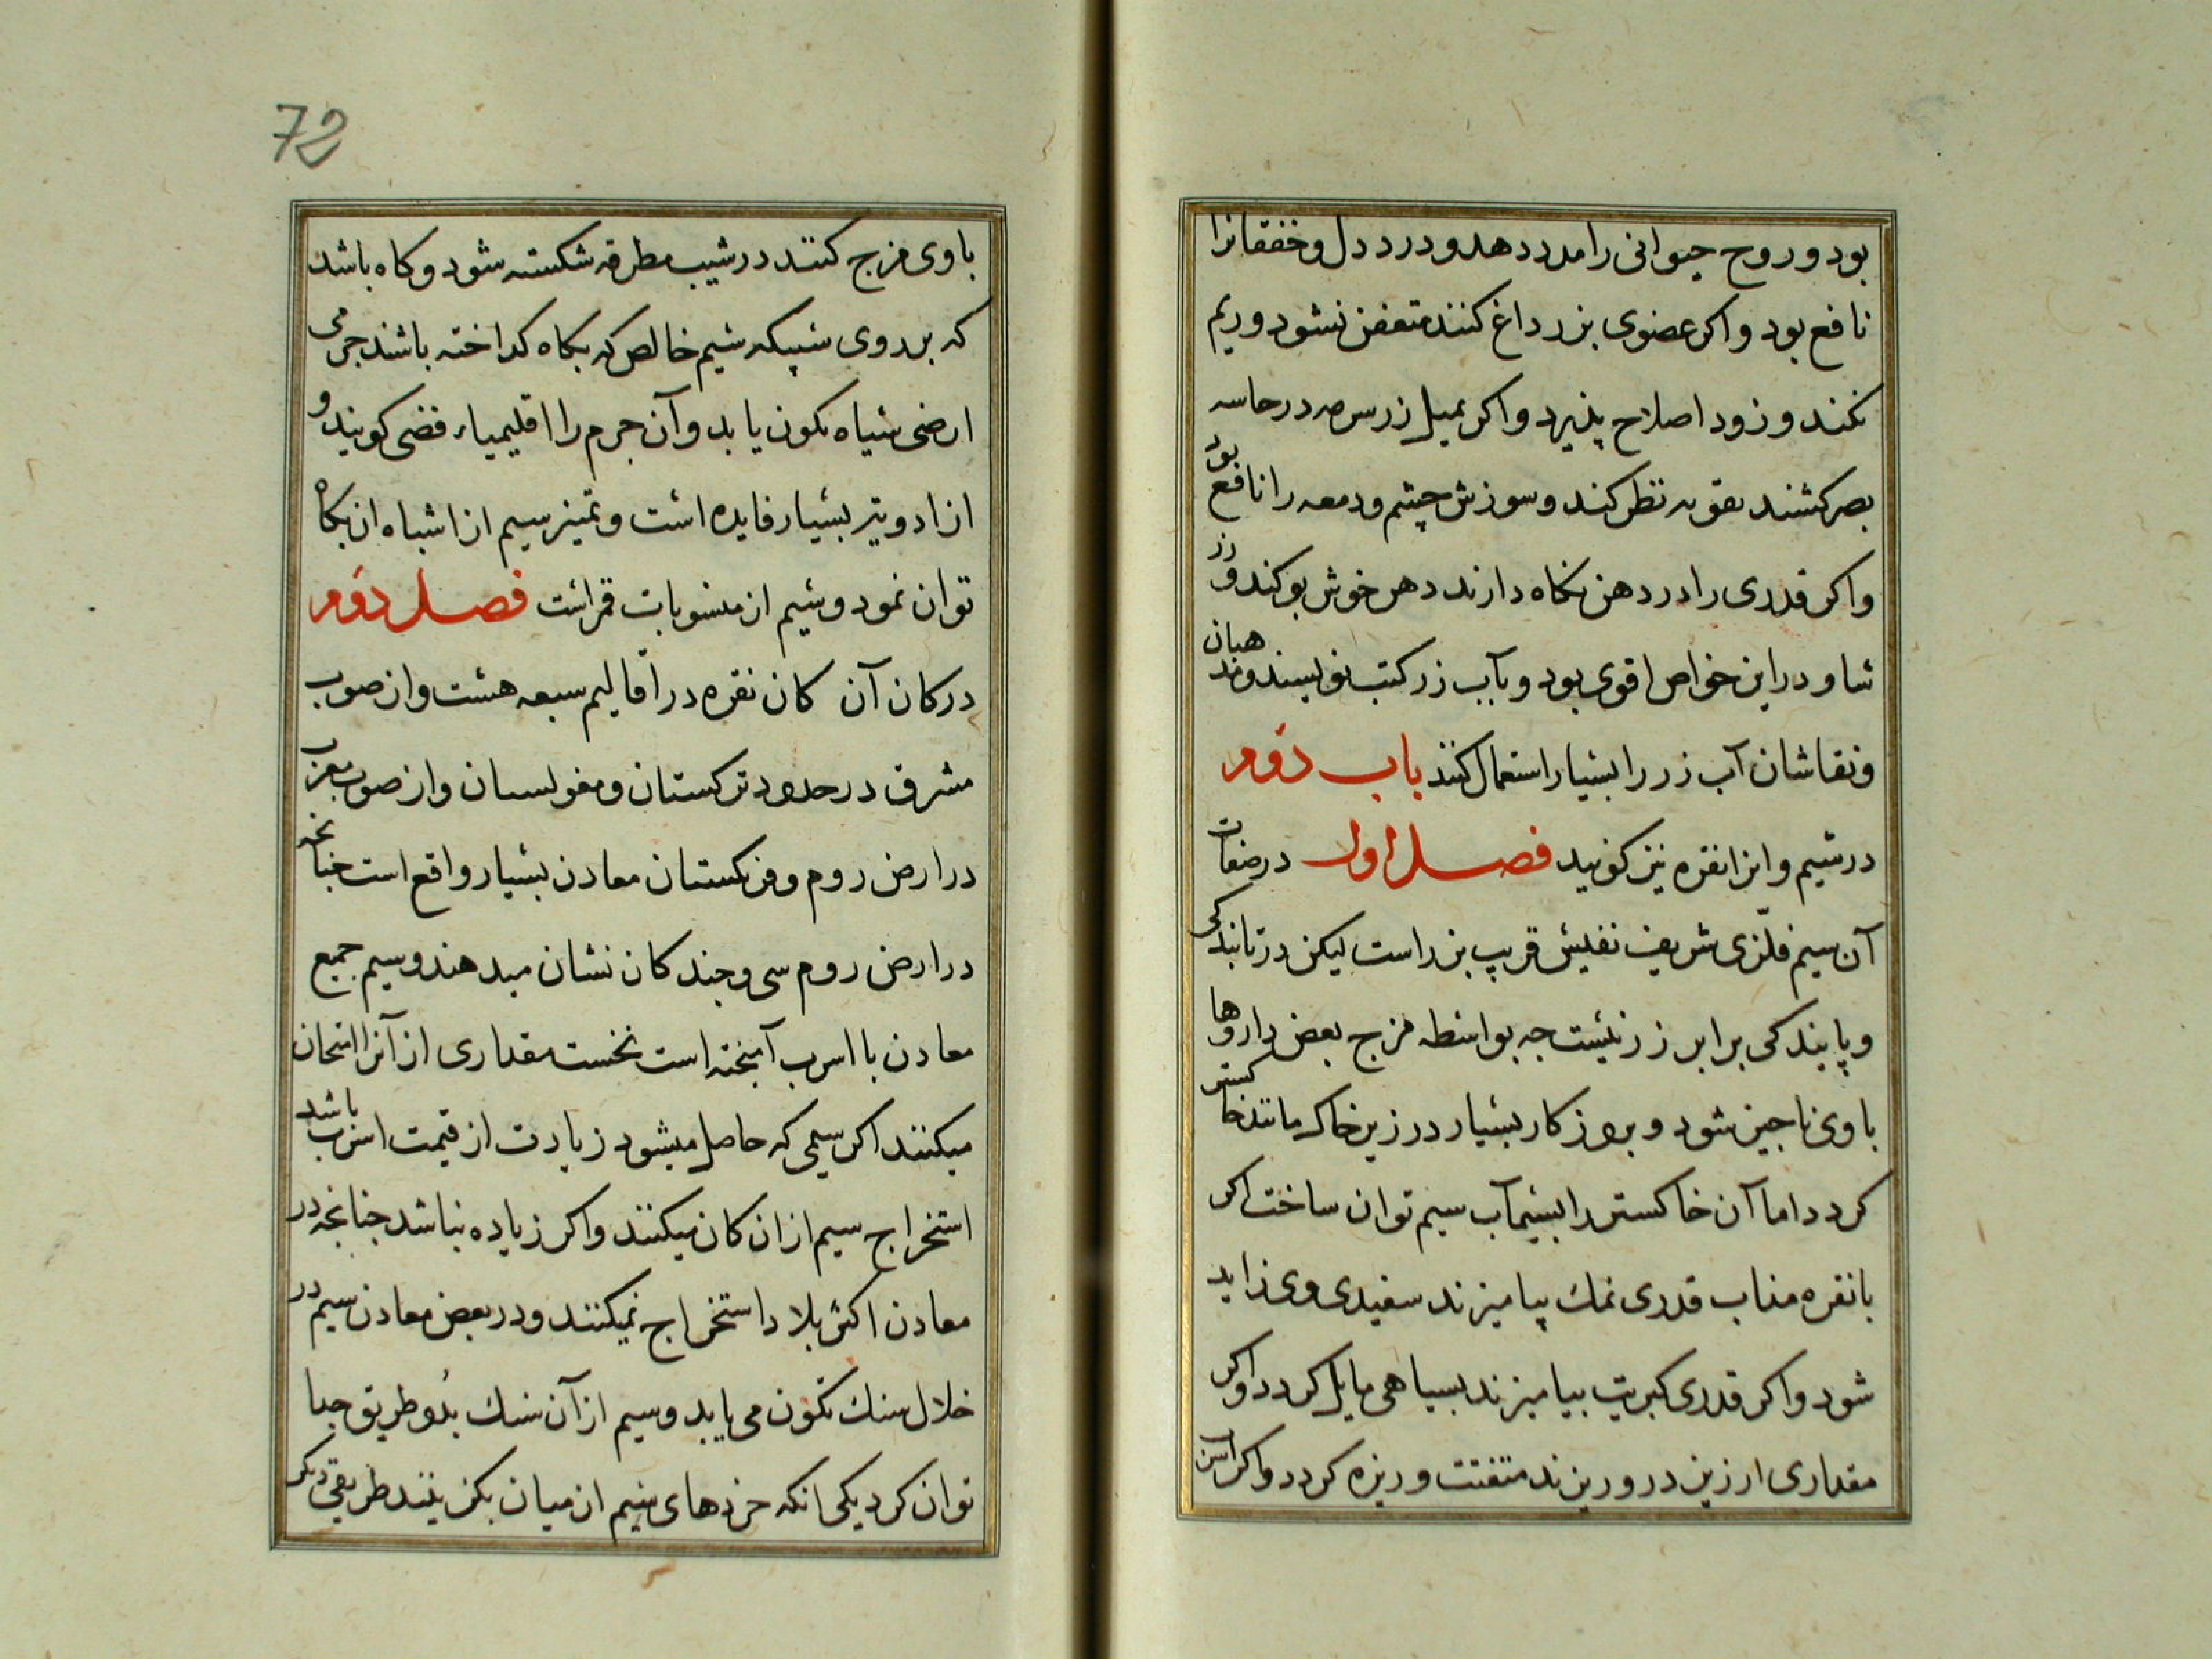 بود و روح حیوانی را مدد دهد و درد دل و خفقانرا
نافع بود و اکر عضوی بزر داغ کنند متعفن نشود و ریم
نکند و زود اصلاح پذیرد و اکر بمیل زر سرمه در حاسه
بصر کشند تقویه نظر کند و سوزش چشم و دمعه را نافع بود
و اکر قدری را در دهن نکاه دارند دهن خوش بو کند و زر
شاو در این خواص اقوی بود و بآب زر کتب نویسند و مذهبان
و نقاشان آب زر را بسیار استعمال کنند باب دوم
در سیم و انرا نقره نیز کویند فصل اول در صفات
آن سیم فلزی شریف نفیس قریب بزر است لیکن در تابندکی
و پایندکی برابر زر نیست جه بواسطه مزج بعض داروها
با وی ناجیز شود و بروزکار بسیار در زیر خاک مانند خاکستر
کردد اما آن خاکستر را بسیماب سیم توان ساخت اکر
با نقره مذاب قدری نمک بیامیزند سفیدی وی زاید
شود و اکر قدری کبریت بیامیزند بسیاهی مایل کردد و اکر
مقداری ارزیز درو ریزند متفتت و ریزه کردد و اکر اسرب
72
با وی مزج کنند در شیب مطرقه شکسته شود و کاه باشد
که بر روی سبیکه سیم خالص که بکاه کداخته باشند جرمی
ارضی سیاه تکون یابد و آن جرم را اقلیمیاء فضی کویند و
از ادویه بسیار فایده است و تمیز سیم از اشباه ان بکاه
توان نمود و سیم از منسوبات قمر است فصل دوم
در کان آن کان نقره در اقالیم سبعه هست و از صوب
مشرق در حدود ترکستان و مغولستان و از صوب مغرب
در ارض روم و فرنکستان معادن بسیار واقع است جنانجه
در ارض روم سی و جند کان نشان میدهند و سیم جمیع
معادن با اسرب آمیخته است نخست مقداری از آنرا امتحان
میکنند اکر سیمی که حاصل میشود زیادت از قیمت اسرب باشد
استخراج سیم از ان کان میکنند و اکر زیاده نباشد جنانجه در
معادن اکثر بلاد استخراج نمیکنند و در بعض معادن سیم در
خلال سنک تکون می یابد و سیم از آن سنک بدو طریق جدا
توان کرد یکی انکه خردهای سیم از میان بکزینند طریقی دیکر